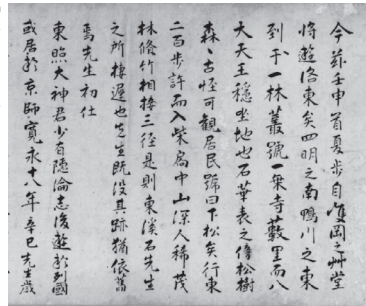 今茲壬申首夏步自雙岡之艸堂
將遊洛東矣四明之南鴨川之東
到于一林叢號一乗寺藪里而八
大天王穩坐地也石華表之傍松樹
森〻古怪可觀居民號曰下松矣行東
二百步許而入柴扃中山深人稀茂
林脩竹相接三徑是則東溪石先生
之所棲遲也先生既没其跡猶依舊
焉先生初仕
東照大神君少有隱淪志後遊於列國
或居於京師寬永十八年辛巳先生歲